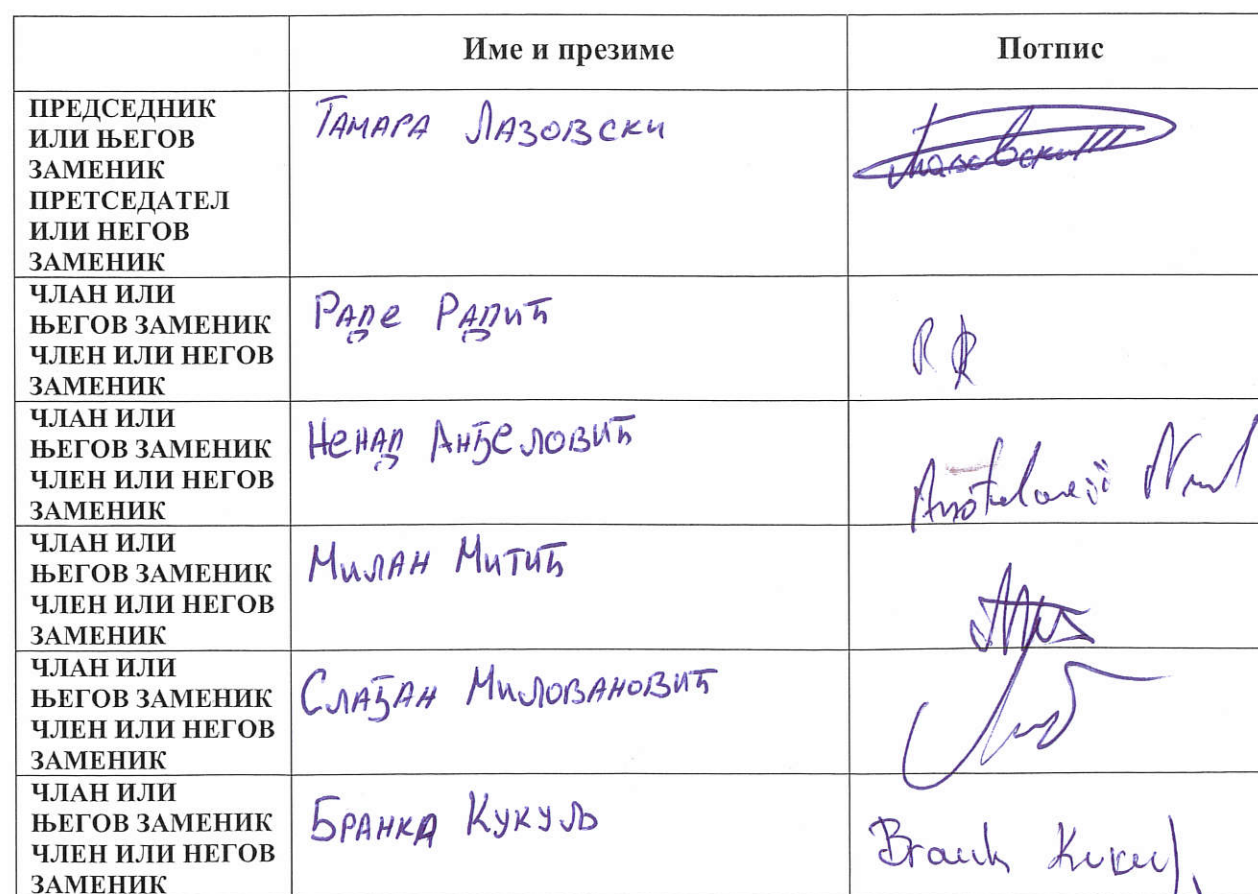 Име и презиме Потпис
ПРЕДСЕДНИК
ИЛИ ЊЕГОВ
ЗАМЕНИК
ПРЕТСЕДАТЕЛ
ИЛИ НЕГОВ
ЗАМЕНИК
ТАМАРА ЛАЗОВСКИ
Лазовски
ЧЛАН ИЛИ
ЊЕГОВ ЗАМЕНИК
ЧЛЕН ИЛИ НЕГОВ
ЗАМЕНИК
РАДЕ РАДИЋ
ЧЛАН ИЛИ
ЊЕГОВ ЗАМЕНИК
ЧЛЕН ИЛИ НЕГОВ
ЗАМЕНИК
НЕНАД АНЂЕЛОВИЋ
ЧЛАН ИЛИ
ЊЕГОВ ЗАМЕНИК
ЧЛЕН ИЛИ НЕГОВ
ЗАМЕНИК
МИЛАН МИТИЋ
ЧЛАН ИЛИ
ЊЕГОВ ЗАМЕНИК
ЧЛЕН ИЛИ НЕГОВ
ЗАМЕНИК
СЛАЂАН МИЛОВАНОВИЋ
ЧЛАН ИЛИ
ЊЕГОВ ЗАМЕНИК
ЧЛЕН ИЛИ НЕГОВ
ЗАМЕНИК
БРАНКА КУКУЉ